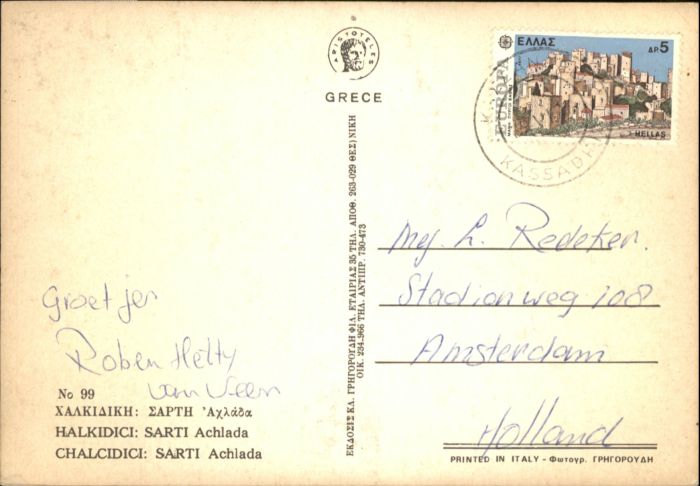 ARISTOTELES
GRECE
ΕΛΛΑΣ ΔΡ. 5
EUROPA
HELLAS
KASSAD
Mej. L. Redeker.
Stadionweg 108
Amsterdam
Holland
Groetjes
Rob en Hetty
van Veen
No 99
ΧΑΛΚΙΔΙΚΗ: ΣΑΡΤΗ Ἀχλάδα
HALKIDICI: SARTI Achlada
CHALCIDICI: SARTI Achlada
ΕΚΔΟΣΙΣ ΚΛ. ΓΡΗΓΟΡΟΥΔΗ ΦΙΛ. ΕΤΑΙΡΙΑΣ 35 ΤΗΛ. ΑΠΟΘ. 263-029 ΘΕΣ)ΝΙΚΗ
ΟΙΚ. 234-966 ΤΗΛ. ΑΝΤΙΠΡ. 730-473
PRINTED IN ITALY - Φωτογρ. ΓΡΗΓΟΡΟΥΔΗ